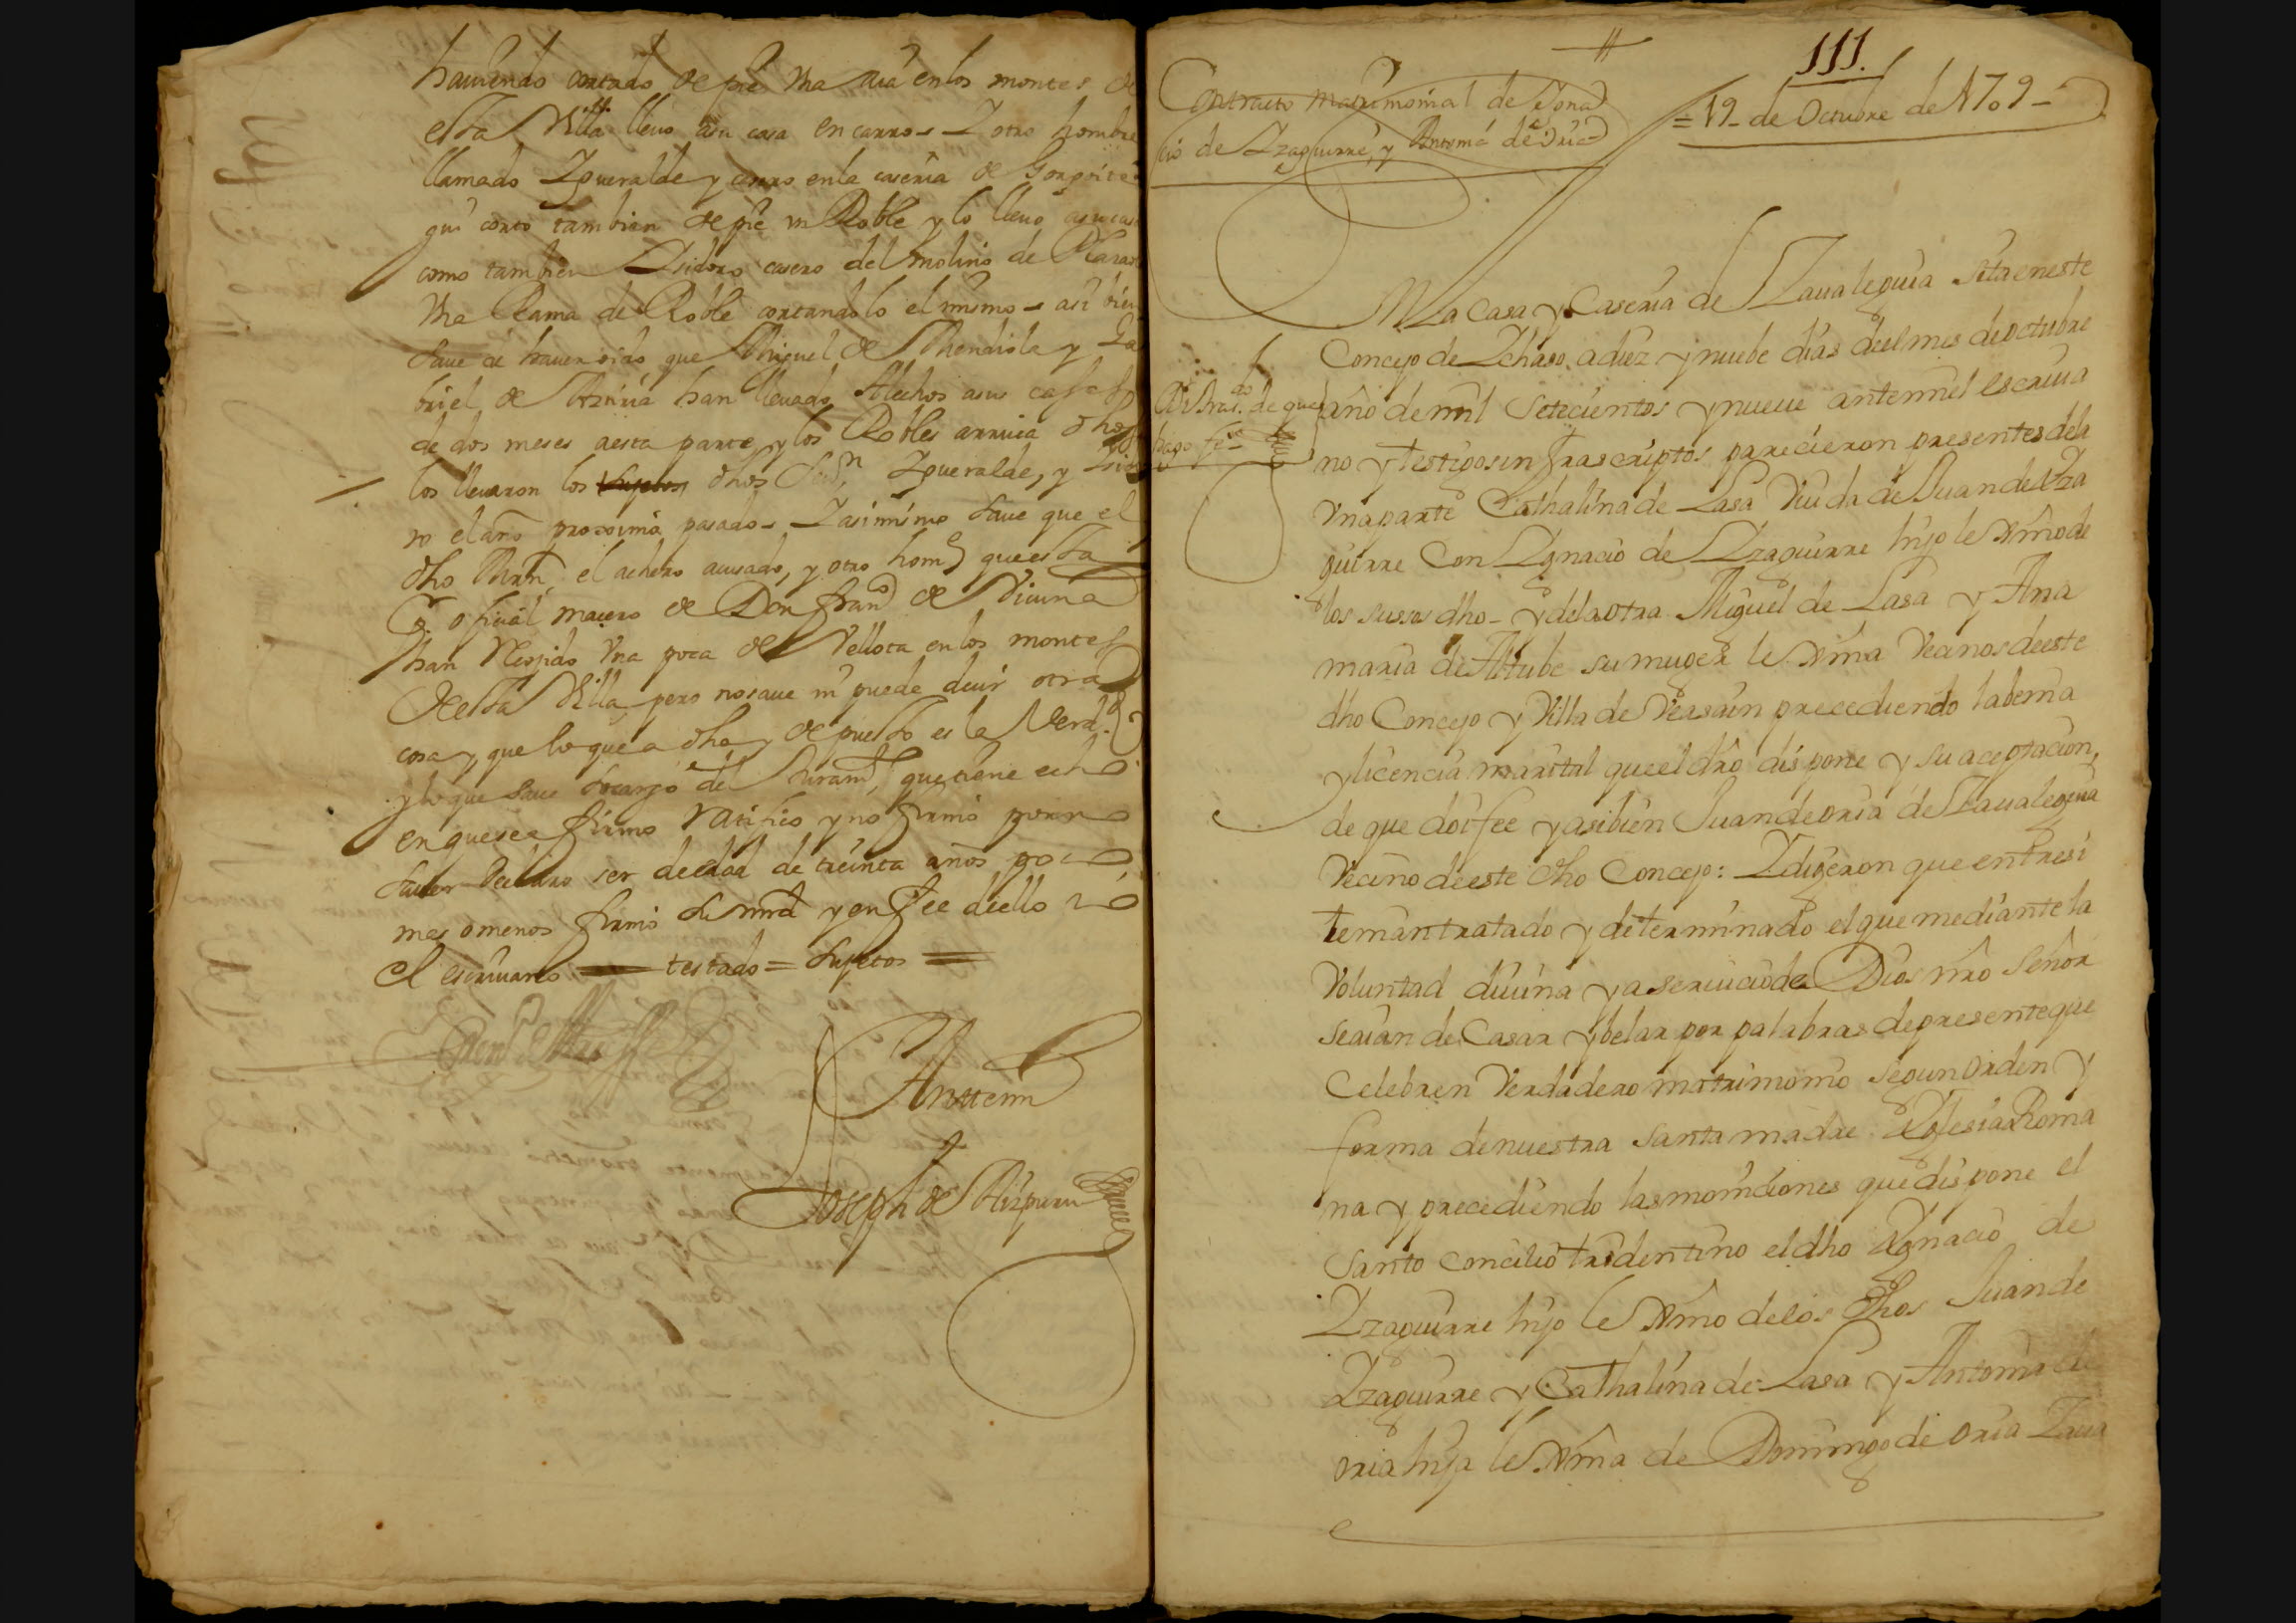 hauiendo cortado de pie Vna en los montes de
esta Villa lleuo a su casa en carro - Y otro hombre
llamado Ygueralde y casero en la caseria de
gui corto tambien de pie vn Roble y lo lleuo a su casa
como tambien Ysidoro casero del molino de
Vna Rama de Roble cortandolo el mismo - asi bien
saue de hauer oido que Miguel de Mendiola y Ga
briel de han lleuado Elechos a sus casas
de dos meses a esta parte y los Robles arriua dhos
los lleuaron los sujetos dhos Ygueralde, y Ysido
ro el año proximo pasado - Y asimismo saue que el
dho Mrn el achero acusado, y otro hom que esta
oficial macero de Don Franco de Vicuna
han Recojido Vna poca de Vellota en los montes
de esta Villa, pero no saue ni puede decir otra
cosa, y que lo que a dho y depuesto es la Verd.
y lo que saue so cargo del Juramto, que tiene echo
en que se afirmo Ratifico y no firmo por no
sauer declaro ser de edad de treinta años poco
mas o menos firmo su mrd y en fee de ello yo
el escriuano == testado = sujetos ==
Antemi
Joseph de Aizpuru
III.
Contracto matrimonial de Igna
cio de Yzaguirre, y Antonia de Oria
= 19 - de Octubre de 1709 -
En La Casa y Caseria de Zaualeguia sita en este
Concejo de Ychaso a diez y nuebe dias de el mes de octubre
de que
hago fe
año de mil setecientos y nueue ante mi el escriua
no y testigos infrascriptos parecieron presentes de la
vna parte Cathalina de Lasa Viuda de Juan de Yza
guirre Con Ygnacio de Yzaguirre hijo lexmo de
los susso dho - y de la otra Miguel de Lasa y Ana
maria de Altube su muger lexma Vecinos de este
dho Concejo y Villa de Veasain precediendo la benia
y licencia marital que el dro dispone y su aceptacion,
de que doi fee y asibien Juan de oria de Zaualeguia
Vecino de este dho Concejo: Y digeron que entre si
temian tratado y determinado el que mediante la
Voluntad diuina y a seruicio de Dios nro señor
se aian de Casar y belar por palabras de presente que
Celebren Verdadero matrimonio segun orden y
forma de nuestra santa madre Yglesia Roma
na y precediendo las moniciones que dispone el
Santo Concilio tridentino el dho Ygnacio de
Yzaguirre hijo lexmo de los dhos Juan de
Yzaguirre y Cathalina de Lasa y Antonia de
oria hija lexma de Domingo de oria Zaua